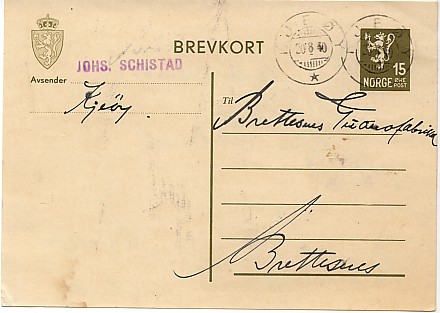 BREVKORT
JOHS. SCHISTAD
Avsender
Kjeøy
20 8 40
15
ØRE
NORGE POST
Til
Brettesnes Guanofabrikk
Brettesnes